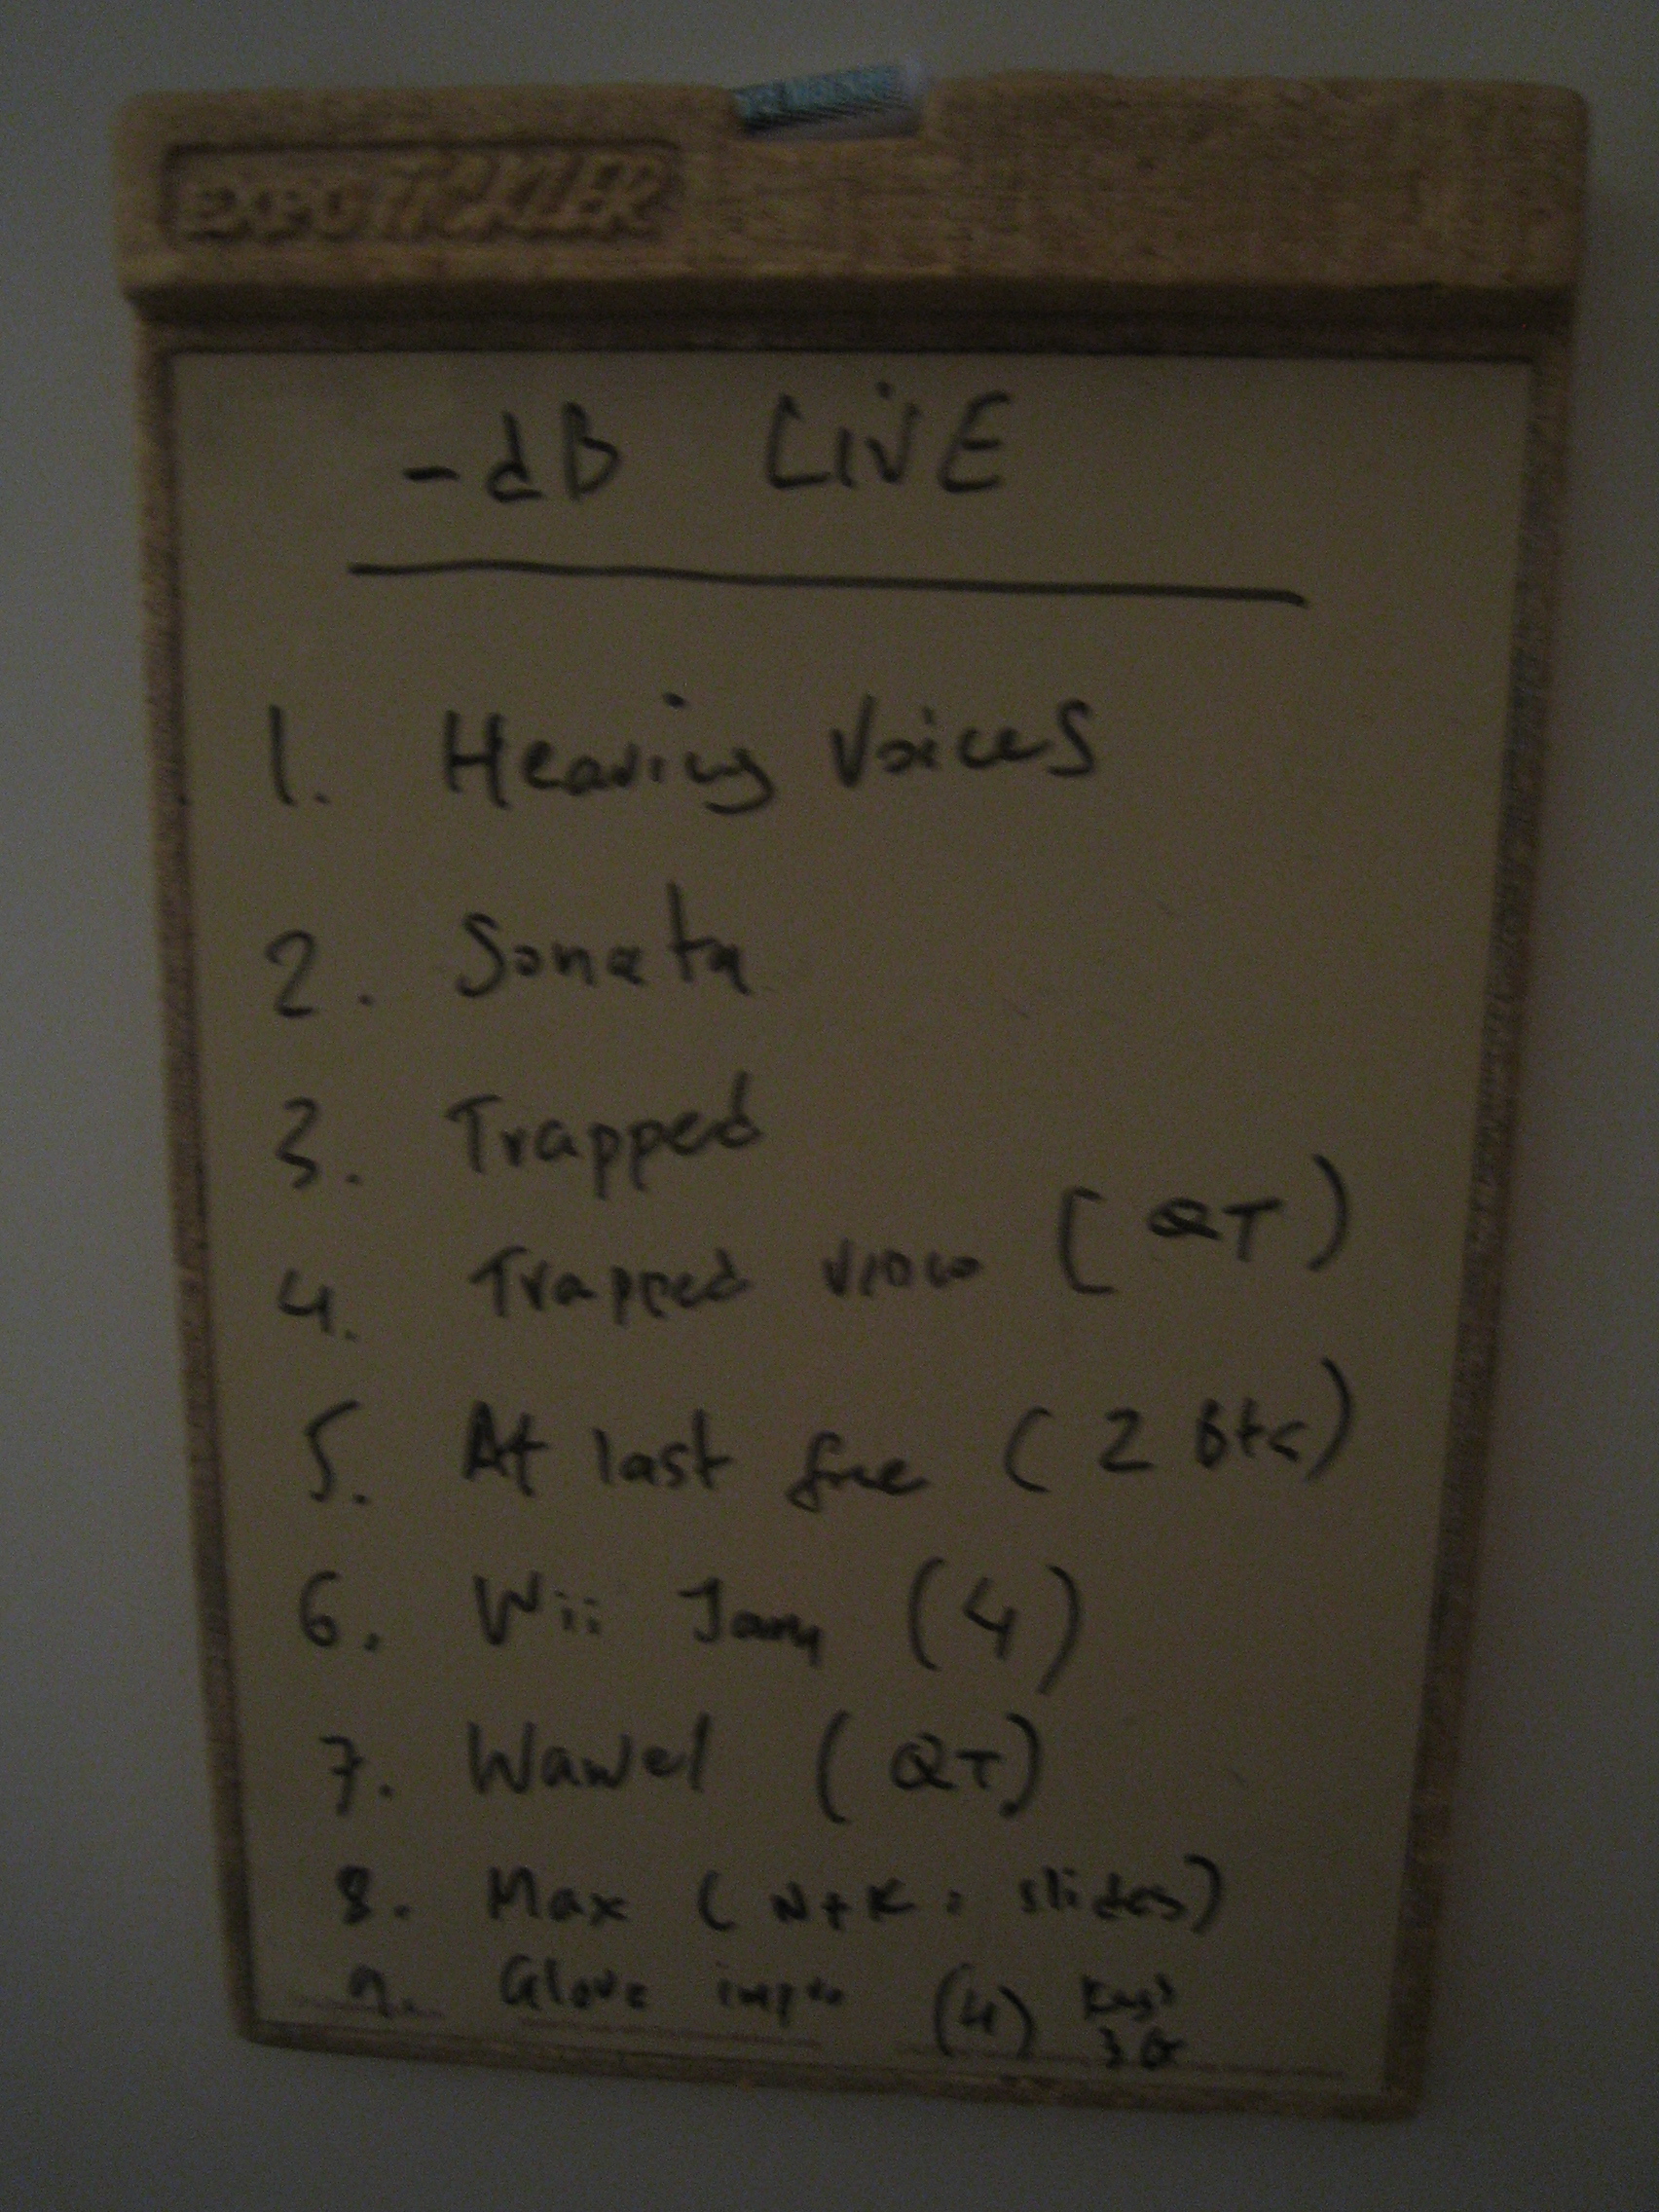 EXPO TICKLER
-dB LIVE
1. Hearing Voices
2. Sonata
3. Trapped
4. Trapped video (QT)
5. At last free (2 Bts)
6. Wii Jam (4)
7. Wawel (QT)
8. Max (N+K: slides)
9. Glove impro (4)